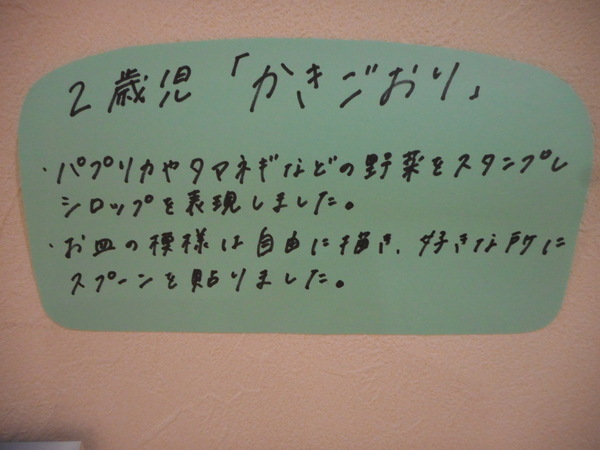 2歳児「かきごおり」
・パプリカやタマネギなどの野菜をスタンプし
シロップを表現しました。
・お皿の模様は自由に描き、好きな所に
スプーンを貼りました。